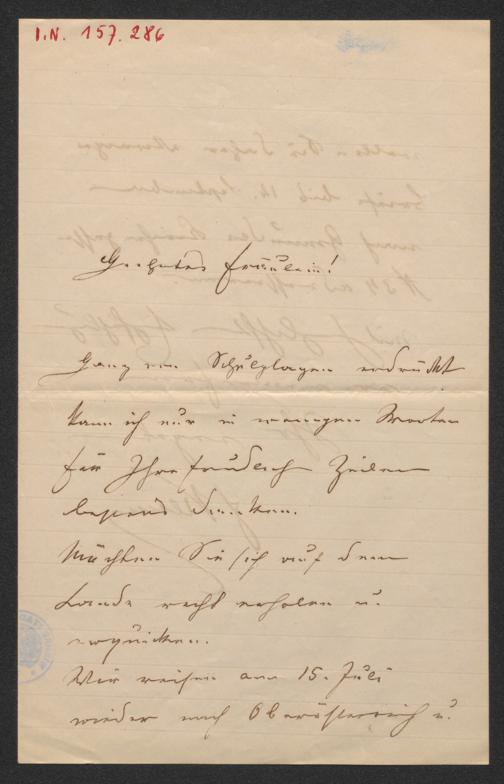 I.N. 157.286
Geehrtes Fräulein!
Ganz von Schulplagen erdrückt
kann ich nur in wenigen Worten
für Ihre freundlich Zeilen
bestens danken.
Möchten Sie sich auf dem
Lande recht erholen u.
erquicken.
Wir reisen am 15. Juli
wieder nach Oberösterreich u.